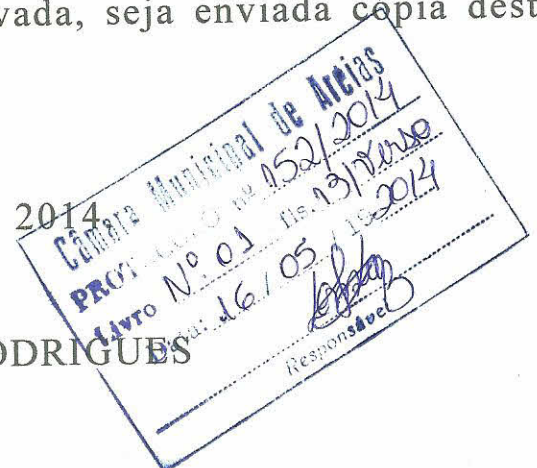 vada, seja enviada copia dest
2014.
ODRIGUES
Câmara Municipal de Areias
PROTOCOLO nº 152/2014
Livro Nº 01 fls. 13/Verso
Data: 16/05/192014
Responsável